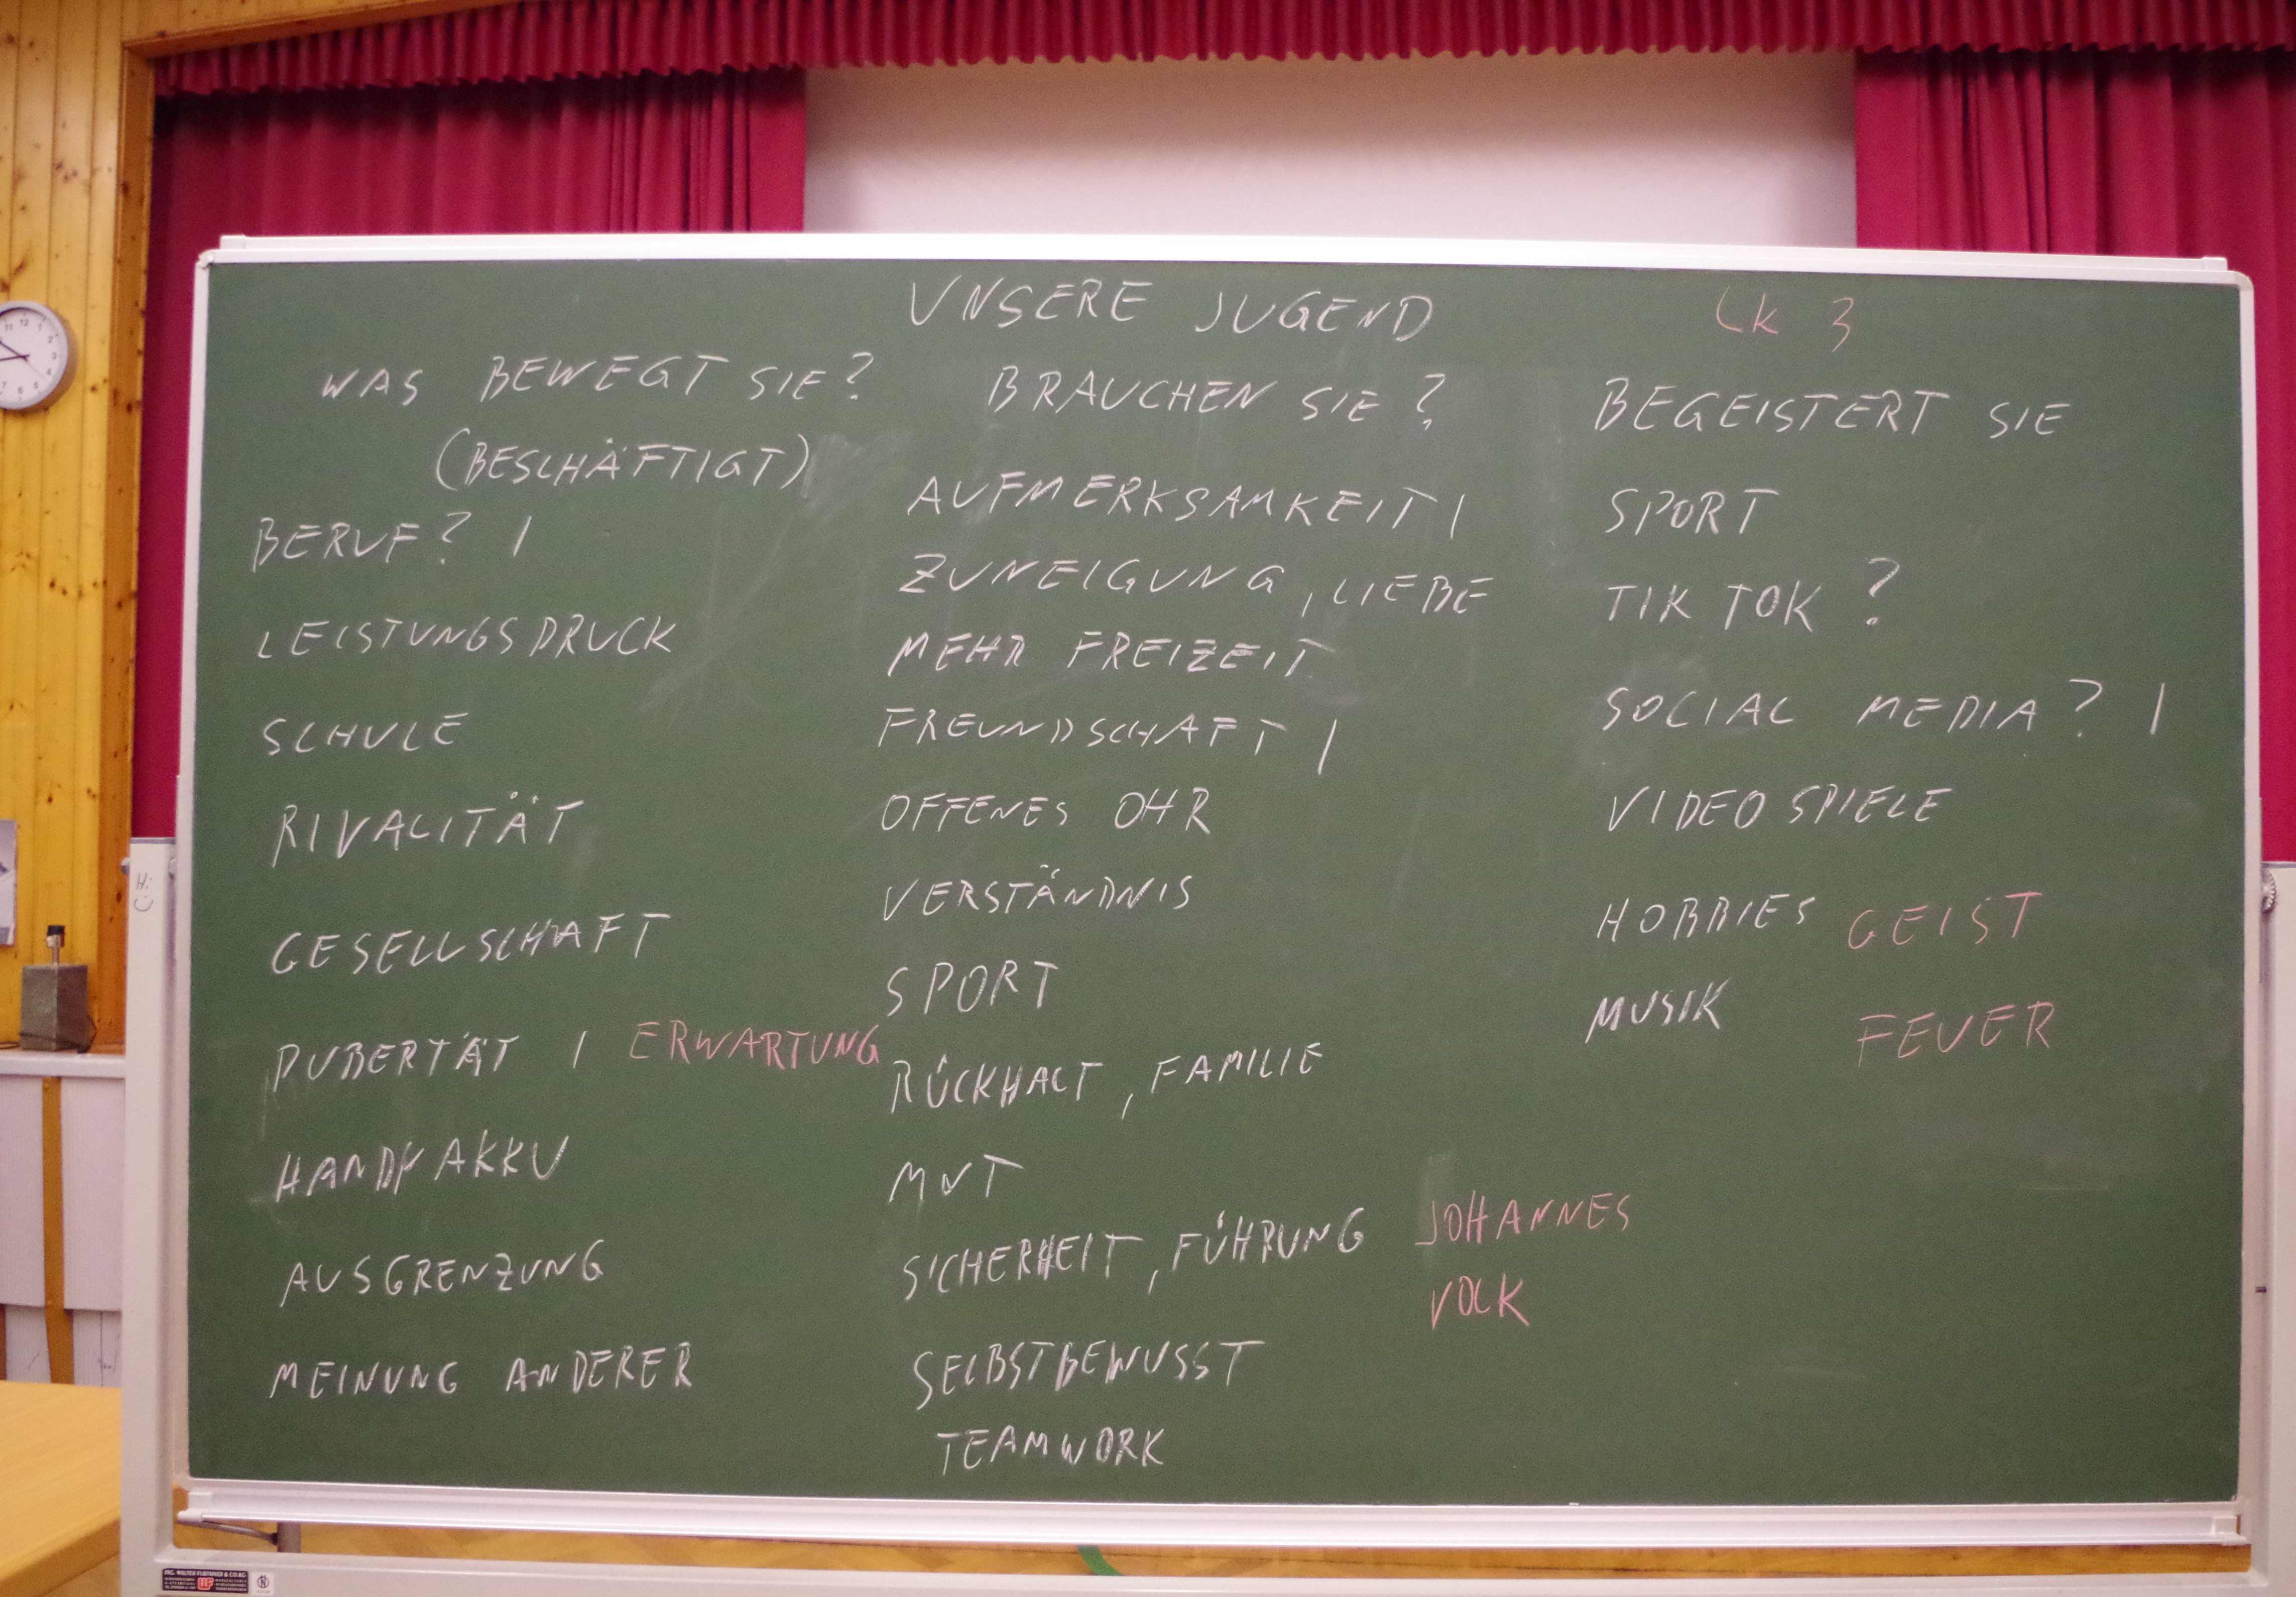 UNSERE JUGEND
Lk 3
WAS BEWEGT SIE?
(BESCHÄFTIGT)
BERUF? |
LEISTUNGSDRUCK
SCHULE
RIVALITÄT
GESELLSCHAFT
PUBERTÄT | ERWARTUNG
HANDYAKKU
AUSGRENZUNG
MEINUNG ANDERER
BRAUCHEN SIE?
AUFMERKSAMKEIT |
ZUNEIGUNG, LIEBE
MEHR FREIZEIT
FREUNDSCHAFT |
OFFENES OHR
VERSTÄNDNIS
SPORT
RÜCKHALT, FAMILIE
MUT
SICHERHEIT, FÜHRUNG JOHANNES
VOLK
SELBSTBEWUSST
TEAMWORK
BEGEISTERT SIE
SPORT
TIK TOK?
SOCIAL MEDIA? |
VIDEOSPIELE
HOBBIES GEIST
MUSIK FEUER
Hi
11 12 1
2
3
4
5
6
7